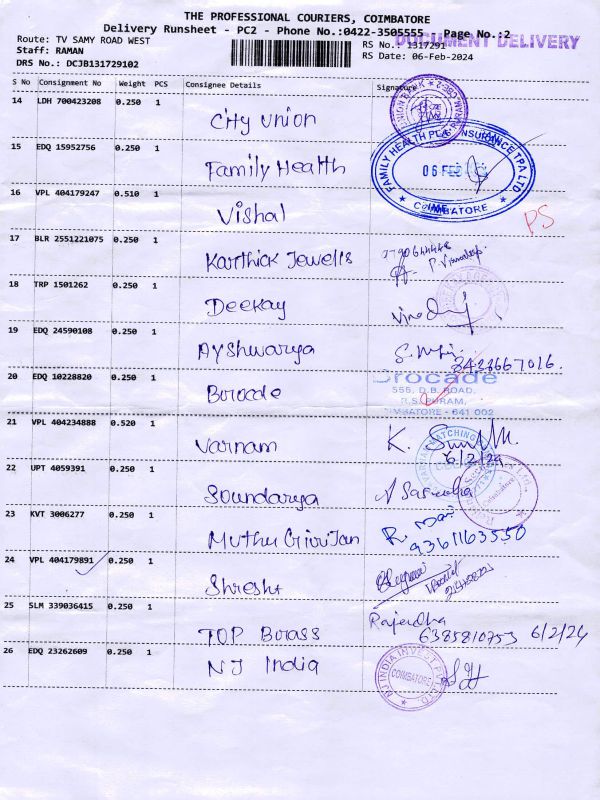 THE PROFESSIONAL COURIERS, COIMBATORE
Delivery Runsheet - PC2 - Phone No.:0422-3505555 Page No.:2
DOCUMENT DELIVERY
Route: TV SAMY ROAD WEST RS No.: 1317291
Staff: RAMAN RS Date: 06-Feb-2024
DRS No.: DCJB131729102
S No Consignment No Weight PCS Consignee Details Signature
14 LDH 700423208 0.250 1
City Union
15 EDQ 15952756 0.250 1
Family Health
FAMILY HEALTH PLAN INSURANCE TPA LTD
06 FEB
COIMBATORE
16 VPL 404179247 0.510 1
Vishal
PS
17 BLR 2551221075 0.250 1
Karthick Jewells
18 TRP 1501262 0.250 1
Deekay
19 EDQ 24590108 0.250 1
Ayshwarya
8423667016.
20 EDQ 10228820 0.250 1
Brocade
Brocade
555, D.B. ROAD,
R.S. PURAM,
COIMBATORE - 641 002
21 VPL 404234888 0.520 1
Varnam
6/2/24
22 UPT 4059391 0.250 1
Soundarya
23 KVT 3006277 0.250 1
Muthu Girijan
9361163550
24 VPL 404179891 0.250 1
Shresht
25 SLM 339036415 0.250 1
Rajendha
TOP Brass 6385810753 6/2/24
26 EDQ 23262609 0.250 1
NJ India
NJ INDIA INVEST PVT LTD
COIMBATORE